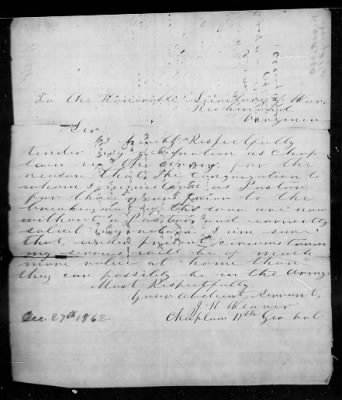 To the Honorable Secretary of War,
Richmond
Virginia
Sir
I most Respectfully
tender my resignation as Chap
lain in the army for the
reason that the congregation to
whom I ministered as Pastor
for three years prior to the
breaking out of this war are now
without a Pastor and earnestly
solicit my return I am sure
that, under present circumstances
my services will be of much
more value at home than
they can possibly be in the Army.
Most Respectfully
Your Obedient Servant,
J. H. Weaver
Dec. 27th 1862. Chaplain 17th Geo Vol